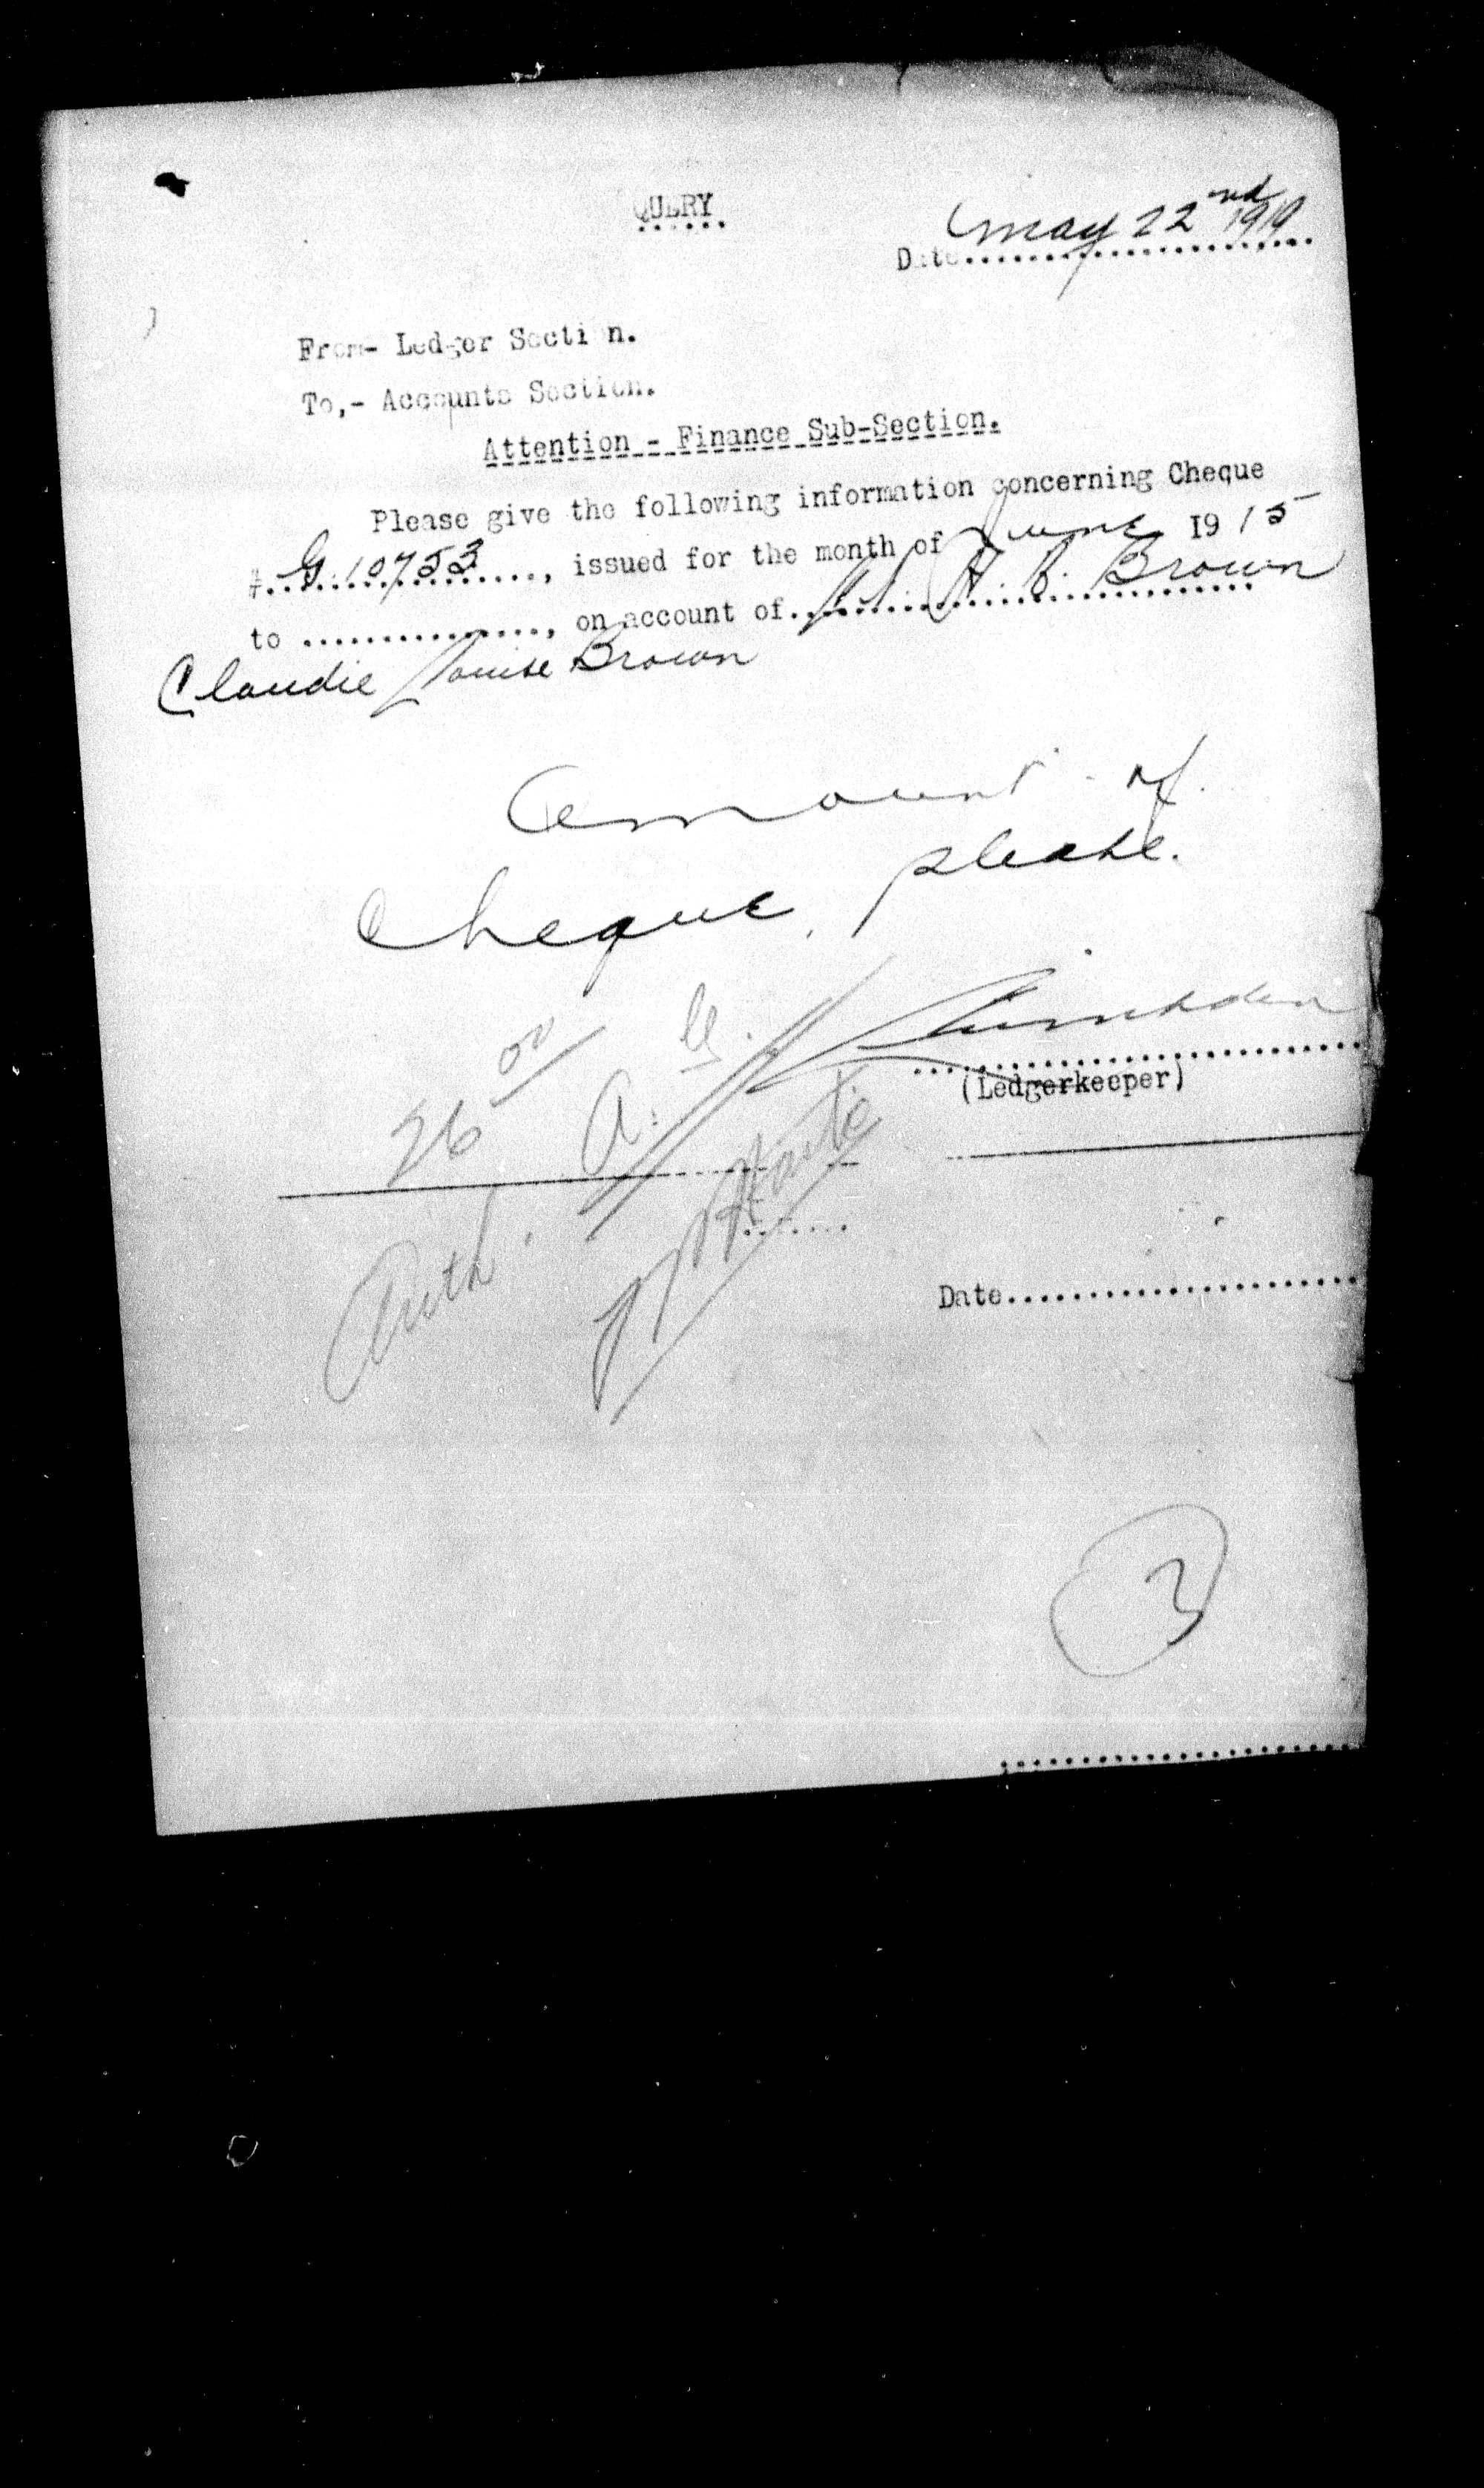 QUERY
May 22nd 1919
Date........................
From- Ledger Section.
To,- Accounts Section.
Attention - Finance Sub-Section.
Please give the following information concerning Cheque
# G.10753, issued for the month of June 1915
to ..............., on account of. H. Brown
Claudie Louise Brown
Amount of
Cheque, please.
(Ledgerkeeper)
26 00
A.
Auth.
Date......................
3